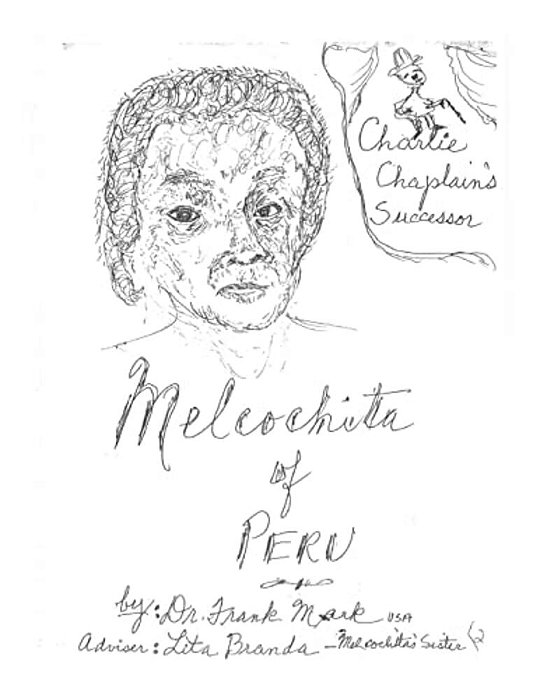 Charlie
Chaplain's
Successor
Melcochita
of
PERU
by: Dr. Frank Mark USA
Adviser: Lita Branda - Melcochita's Sister